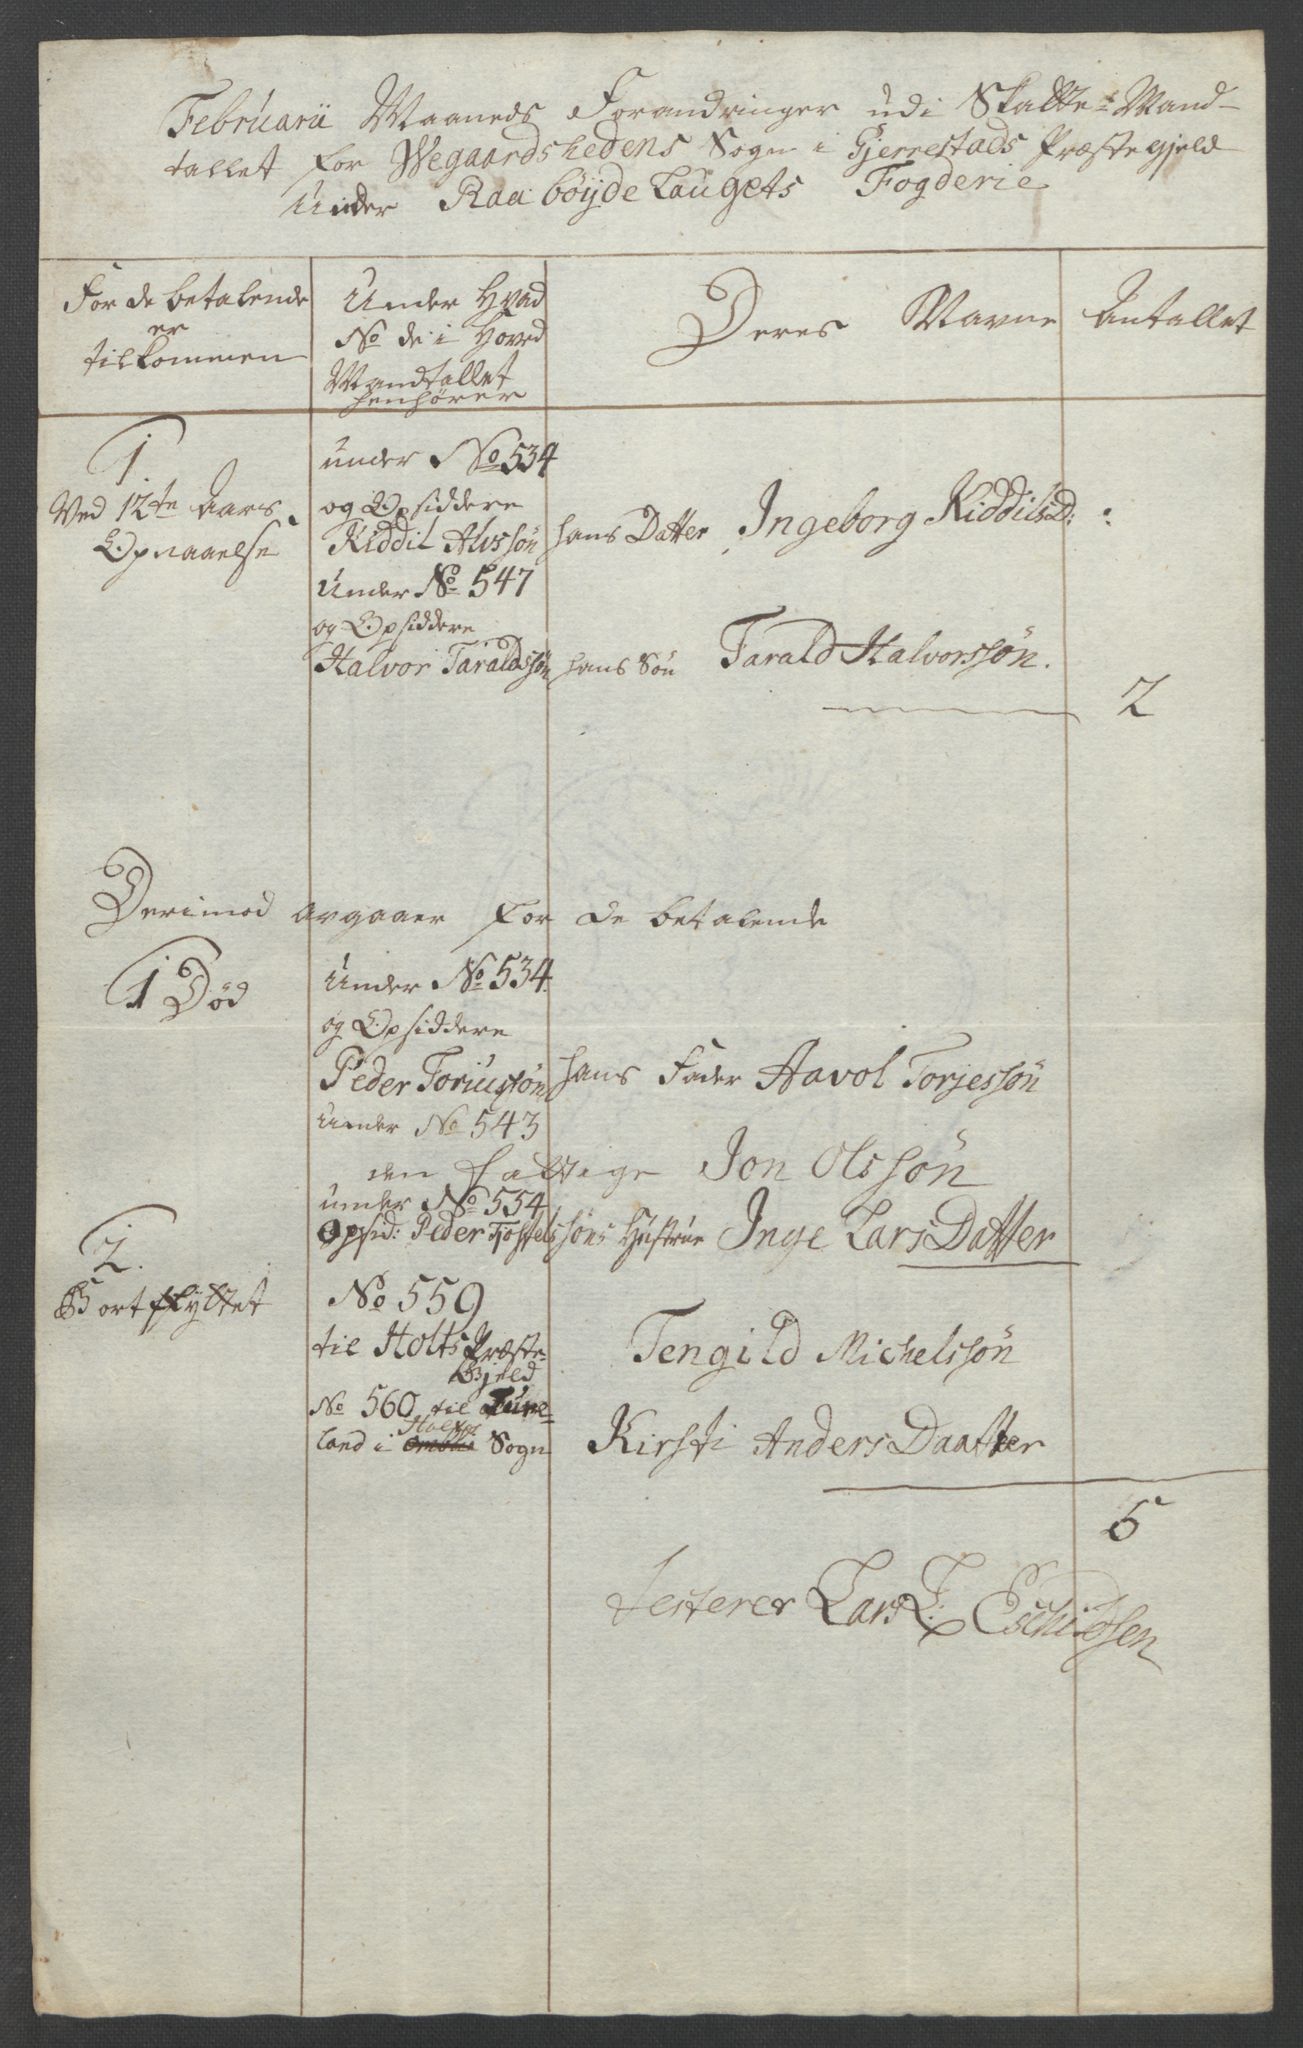 Februarii Maaneds Forandringer udi Skatte-Mand-
tallet for Wegaardshedens Sogn i Gjerrestads Præstegjeld
Under Raabøyde Laugets Fogderie
For de betalende
er
tilkommen
Under Hvad
No de i Hoved
Mandtallet
henhører
Deres Navne
Antallet
1.
Ved 12te Aars
Opnaaelse
under No 534
og Opsiddere
Kiddil Alvssøn hans Datter Ingeborg Kiddilsd:
Under No 547
og Opsiddere
Halvor Taraldssøn hans Søn Tarald Halvorssøn.
2
Derimod avgaaer for de betalende
1 Død
Under No 534.
og Opsiddere
Peder Toriussøn hans Fader Aavol Torjessøn
Under No 543
den fattige Jon Olssøn
under No 554
Opsid: Peder Tjostelssøns Hustrue Inge Lars Datter
2.
Bortflyttet
No 559
til Holts Præste-
Gjeld
Tengild Michelssøn
No 560 til
land i Holts Sogn Kirsti Anders Daatter
5
Testerer Lars L: Eschildsen